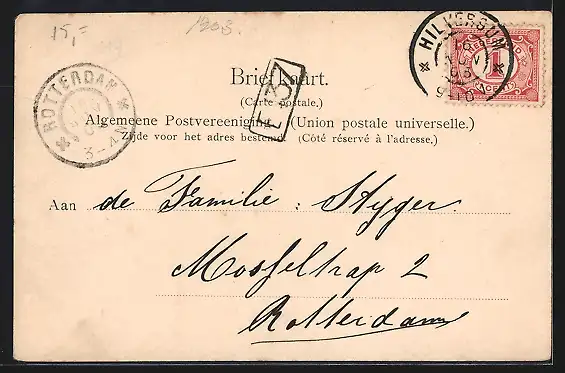 15,=
1903.
HILVERSUM
9-10
NEDERLAND
1
CENT
ROTTERDAM
3-4N
Briefkaart.
(Carte postale.)
F 37
Algemeene Postvereeniging (Union postale universelle.)
Zijde voor het adres bestemd. (Côté réservé à l'adresse,)
Aan de Familie: Styger.
Mosseltrap 2
Rotterdam